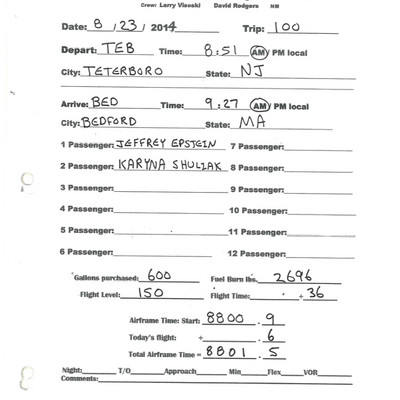 Crew: Larry Visoski David Rodgers NM
Date: 8 / 23 / 2014 Trip: 100
Depart: TEB Time: 8:51 AM/ PM local
City: TETERBORO State: NJ
Arrive: BED Time: 9:27 AM PM local
City: BEDFORD State: MA
1 Passenger: JEFFREY EPSTEIN 7 Passenger:
2 Passenger: KARYNA SHULIAK 8 Passenger:
3 Passenger: 9 Passenger:
4 Passenger: 10 Passenger:
5 Passenger: 11 Passenger:
6 Passenger: 12 Passenger:
Gallons purchased: 600 Fuel Burn lbs. 2696
Flight Level: 150 Flight Time: . + 36
Airframe Time: Start: 8800 . 9
Today's flight: + . 6
Total Airframe Time = 8801 . 5
Night: T/O Approach Min Flex VOR
Comments: